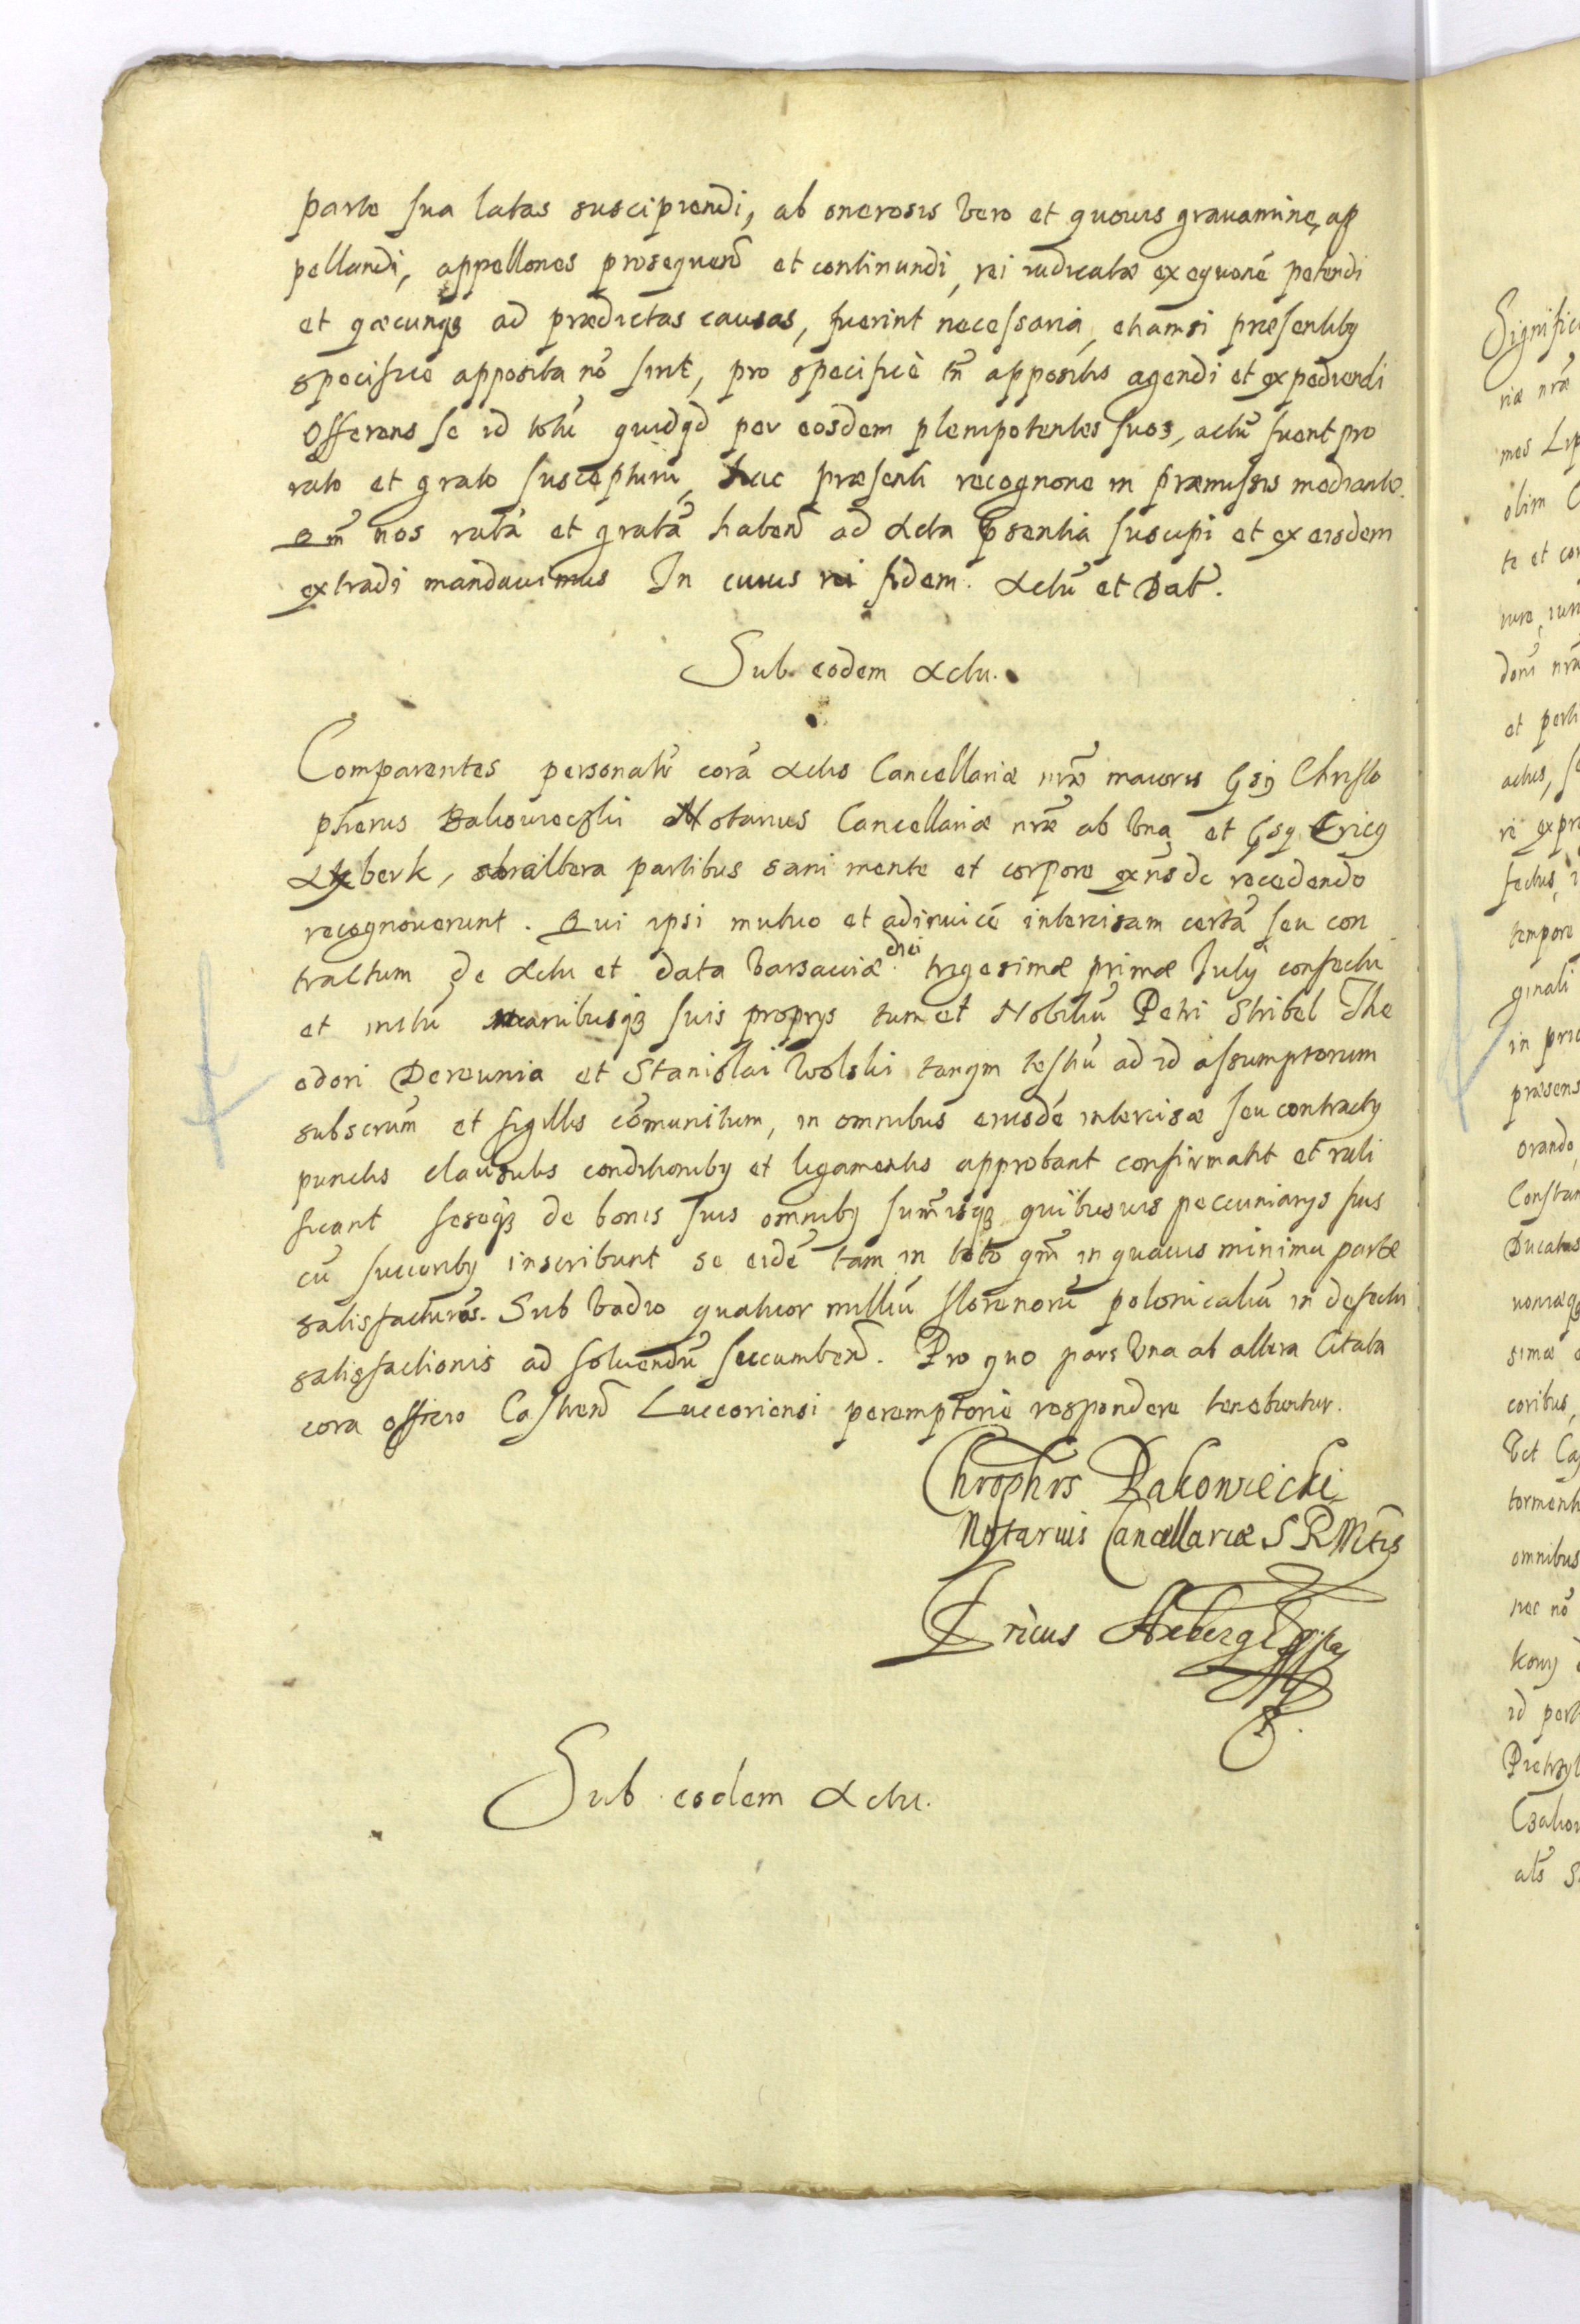 parte sua latas suscipiendi, ab onerosis vero et quovis gravamine, ap
pellandi, appellones prosequend et continundi, rei iudicatæ exequone petendi
et qæcunqꝫ ad prædictas causas, fuerint necessaria, etiamsi præsentiby
specifice apposita nō sint, pro specificè tn̄ appositis agendi et expediendi
Offerens se id totū quidqd per eosdem plenipotentes suos, actū fuerit pro
rato et grato suscepturū, hac præsenti recognone in præmissis mediante.
Qm̄ nos ratā et gratā habend ad Acta pсentia suscipi et ex eisdem
extradi mandavimus In cuius rei fidem. Actū et Dat.
Sub eodem Actu.
Comparentes personalr̄ corā Actis Cancellariæ nrǣ maioris Gsij Christo
pherus Bakowieczki Notarius Cancellariæ nrǣ ab Vna et Gsq Ericq
Axberk, ab altera partibus sani mente et corpore exnsdc recedendo
recognoverunt. Qui ipsi mutuo et adinvicē intercisam certā seu con
tractum de Actu et data Varsaviæ diei trigesimæ primæ Julij confectū
et initū manibusqꝫ suis proprys tum et Nobiliū Petri Stribel The
odori Dereunia et Stanislai Wolski tanqm testiū ad id assumptorum
subscrum̄ et sigillis cōmunitum, in omnibus eiusdē intercisæ seu contractq
punctis clausulis conditioniby et ligamentis approbant confirmant et rati
ficant seseqꝫ de bonis suis omniby sum̄isqꝫ quibusvis pecuniarys suis
cū succoriby inscribunt se eidē tam in toto qm̄ in quavis minima parte
satisfacturos. Sub vadio quatuor milliū florenorū polonicaliū in defectu
satisfactionis ad solvendū succumbend. Pro quo pars Vna ab altera citata
cora officio Castren Luceoriensi peremptorie respondere tenebuntur.
Chrophrs Bakowiecki
Notarius Cancellariæ S R Mttis
Ericus Axberg
Sub eodem Actu.